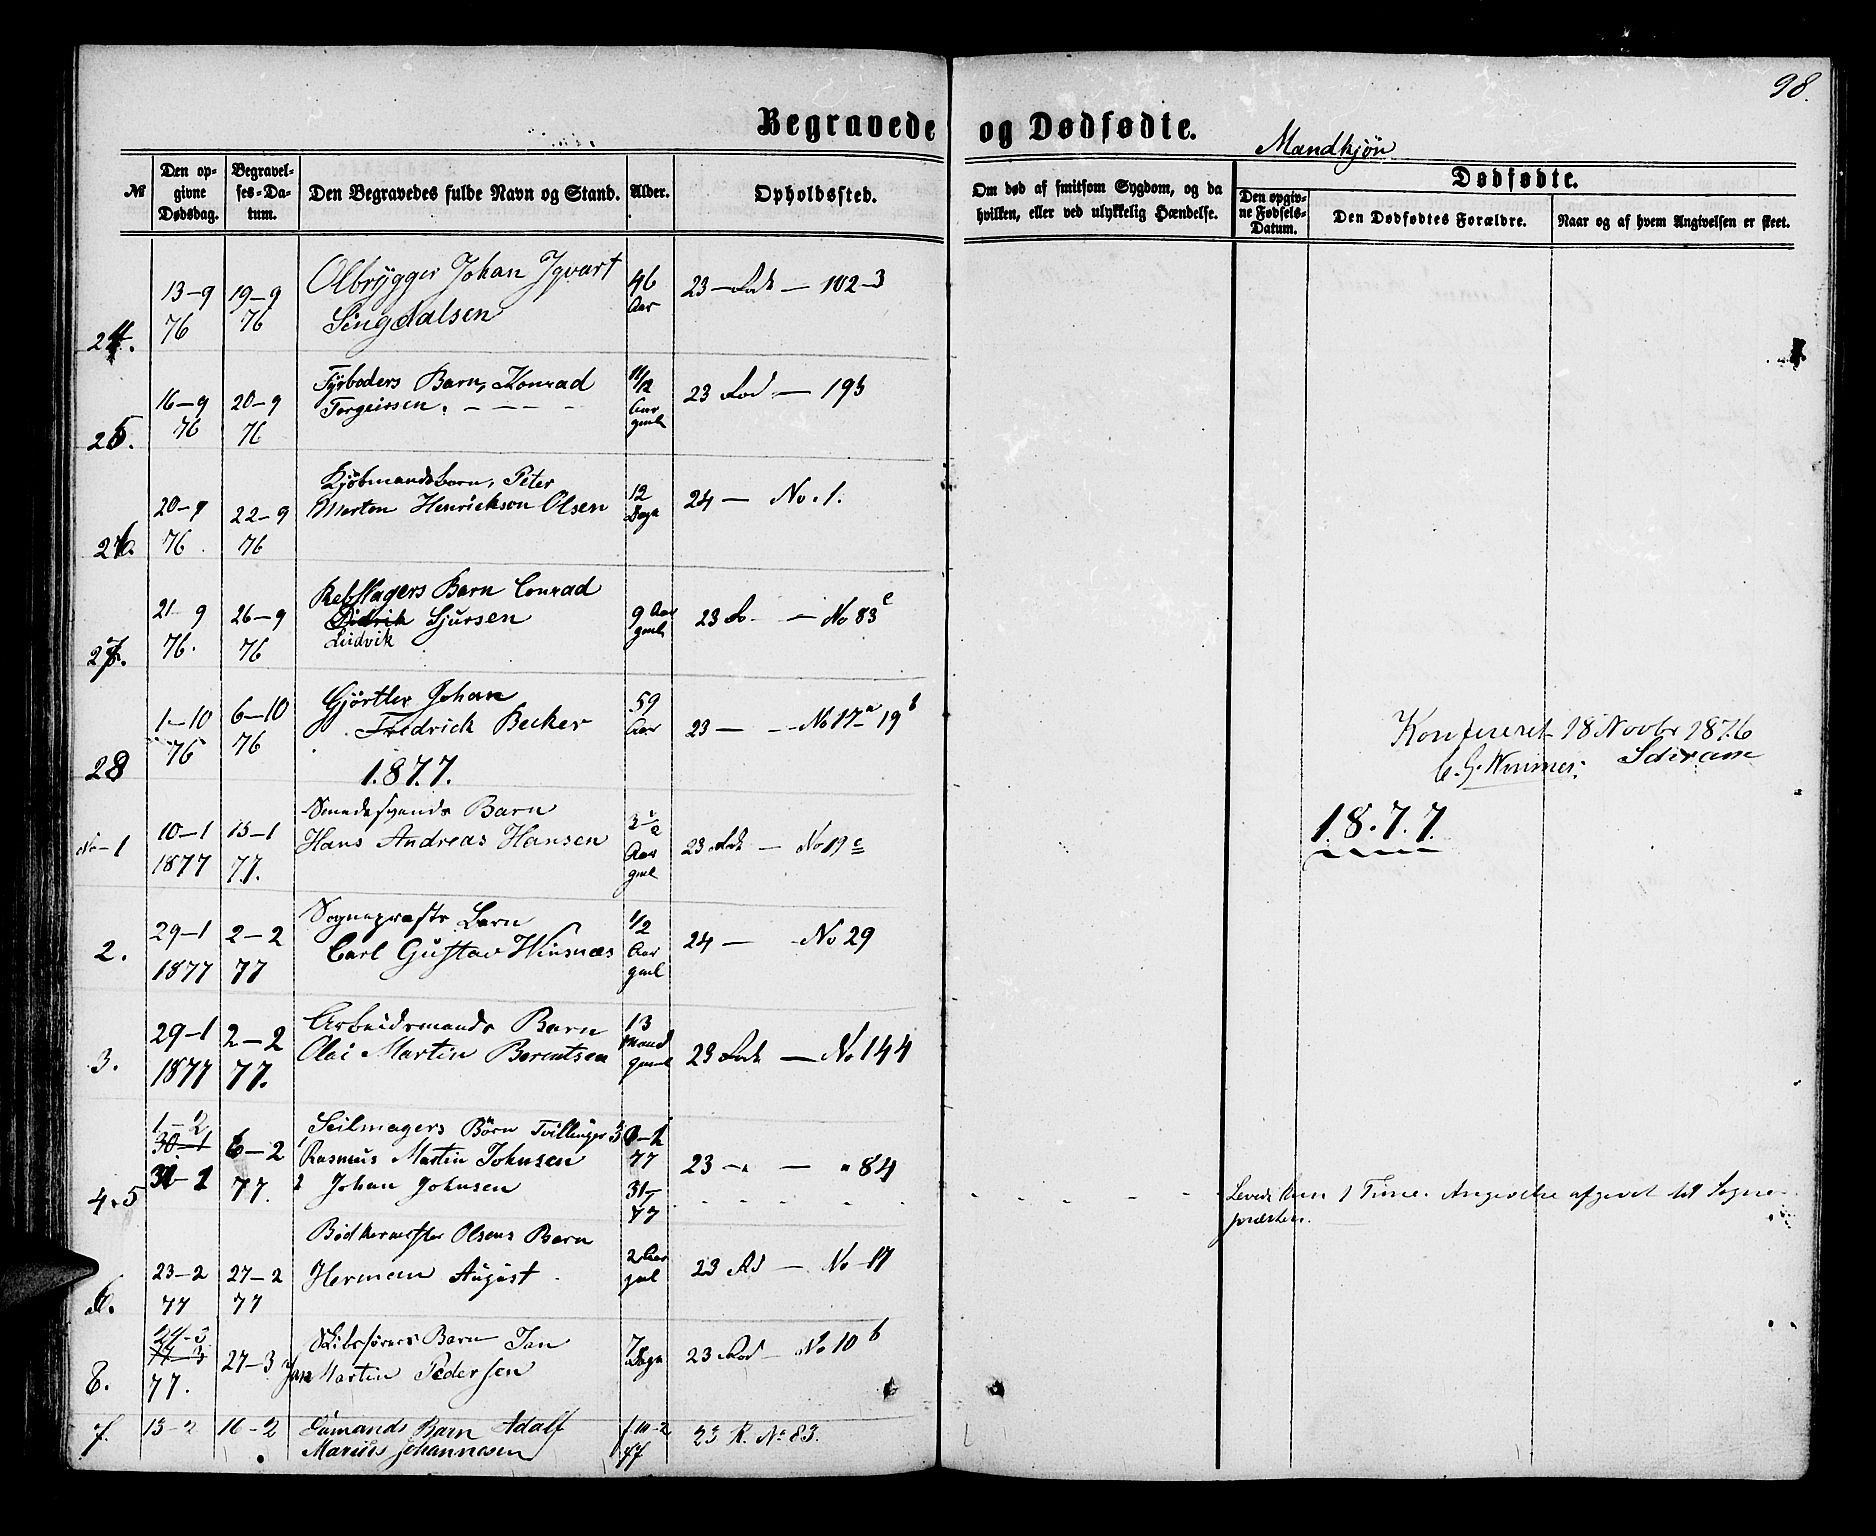 98.
Begravede og Dødfødte.
Mandkjøn
№
Den opgivne Dødsdag.
Begravelses-Datum.
Den Begravedes fulde Navn og Stand.
Alder.
Opholdssted.
Om død af smitsom Sygdom, og da hvilken, eller ved ulykkelig Hændelse.
Dødfødte.
Den opgivne Fødsels-Datum.
Den Dødfødtes Forældre.
Naar og af hvem Angivelsen er skeet.
24. 13-9 76 19-9 76 Olbrygger Johan Igvart 46 Aar 23 - Rode - 102-3
Singdalsen
25. 16-9 76 20-9 76 Fyrbøders Barn, Konrad 1 1/2 Aar gml 23 Rod - 193
Torgeirsen.
26. 20-9 76. 22-9 76 Kjøbmandsbarn, Peter 12 Dage 24 - No. 1.
Morten Henrickson Olsen
27. 21-9 76. 26-9 76 Rebslagers Barn Conrad 9 Aar gml 23 - No 83 c
Didrik Sjursen
Ludvik
28 1-10 76 6-10 76 Gjørtler Johan 59 Aar 23 - - No 17 a 19 b
Fredrick Becker
Konfereret 18 Novbr 1876
1877.
1.8.7.7.
No 1 10-1 1877 15-1 77. Smedesvends Barn Aar gml 23 Rode - No 19 c
Hans Andreas Hansen
2. 29-1 1877 2-2 77 Sogneprests Barn 1/2 Aar gml 24 - No 29
Carl Gustav Winsnæs
3. 29-1 1877 2-2 77. Arbeidsmands Barn 13 Maand gamml 23 Rode - No 144
Olai Martin Berentsen
4.5 1-2 30-1 31-1 6-2 77. Seilmagers Børn Tvillinger 77 23 - - " 84
1 Rasmus Martin Johnsen
2 Johan Johnsen 31-1 77
Levede kun 1 Time. Angivelse afgivet til Sogne-
præsten.
6. 23-2 77 27-2 77 Bødkermester Olsens Barn 2 Aar gml 23 Rd - No 17
Herman August
8. 77. 27-3 Skibsførers Barn Jan 7 Dage 23 Rod - No 10 b
Martin Pedersen
7. 13-2 16-2 Sømands Barn Adolf 77 23 R. No 83.
Marius Johannesen